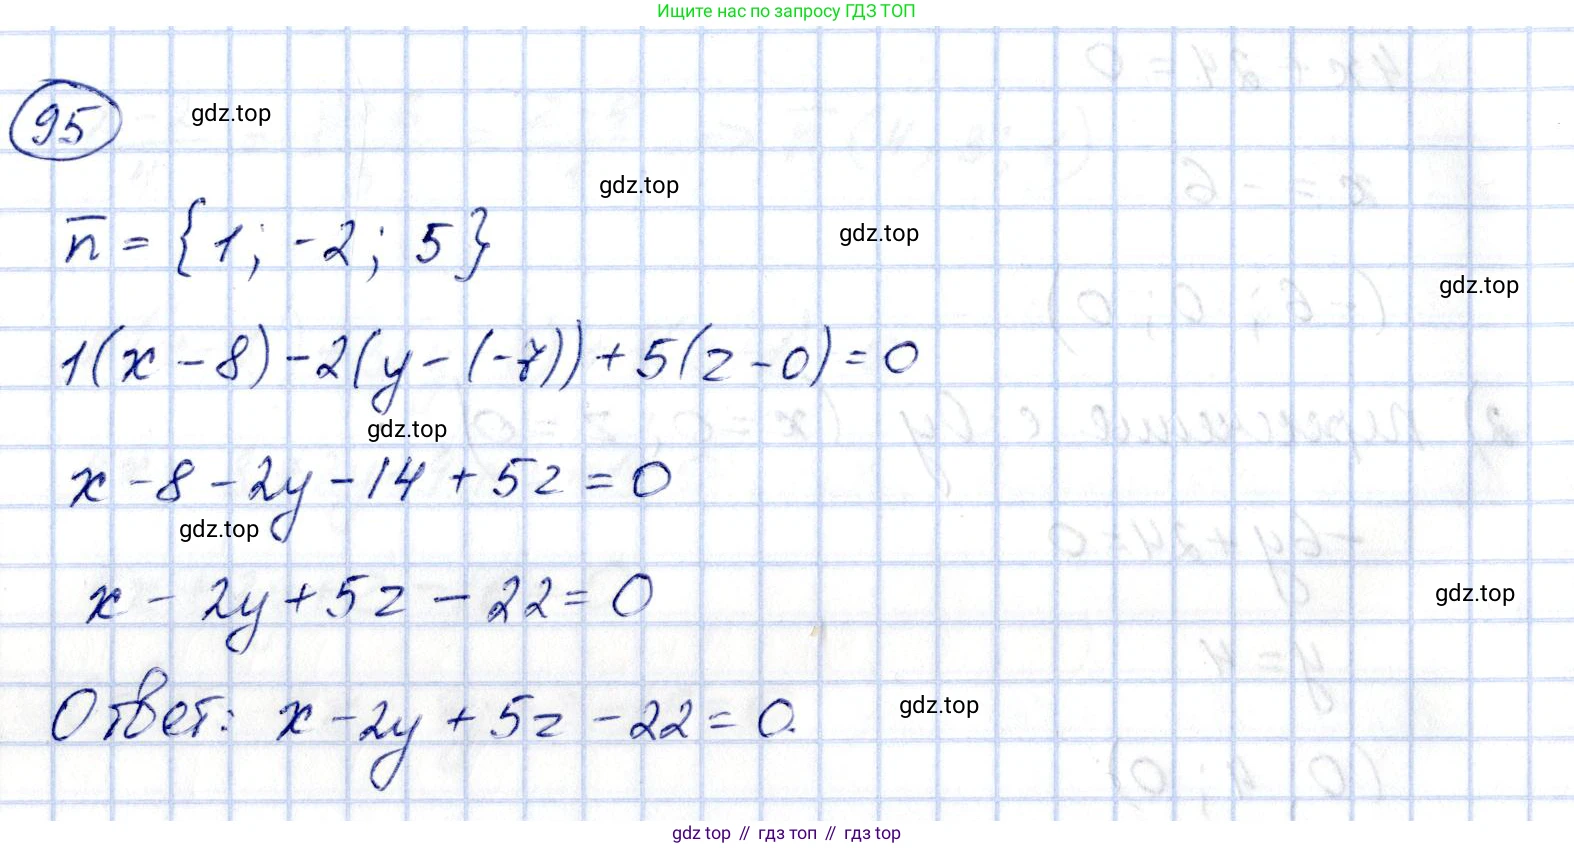 Ищите нас по запросу ГДЗ ТОП
95
gdz.top
gdz.top
n̅ = {1; -2; 5}
gdz.top
gdz.top
1(x - 8) - 2(y - (-7)) + 5(z - 0) = 0
gdz.top
x - 8 - 2y - 14 + 5z = 0
gdz.top
x - 2y + 5z - 22 = 0
gdz.top
Ответ: x - 2y + 5z - 22 = 0.
gdz.top
gdz top // гдз топ // гдз top